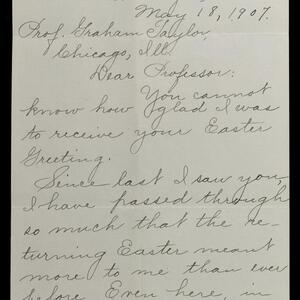 May 18, 1907.
Prof. Graham Taylor,
Chicago, Ill.
Dear Professor:
You cannot
know how glad I was
to receive your Easter
Greeting.
Since last I saw you,
I have passed through
so much that the re-
turning Easter meant
more to me than ever
before. Even here, in